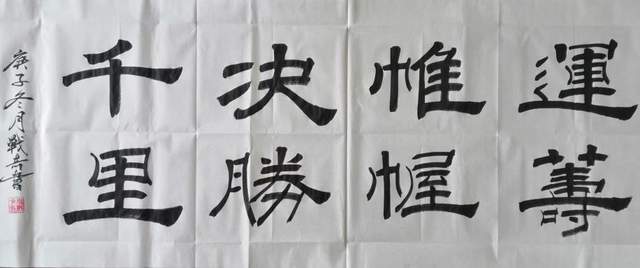 運籌
惟幄
決勝
千里
庚子冬月戰吉書